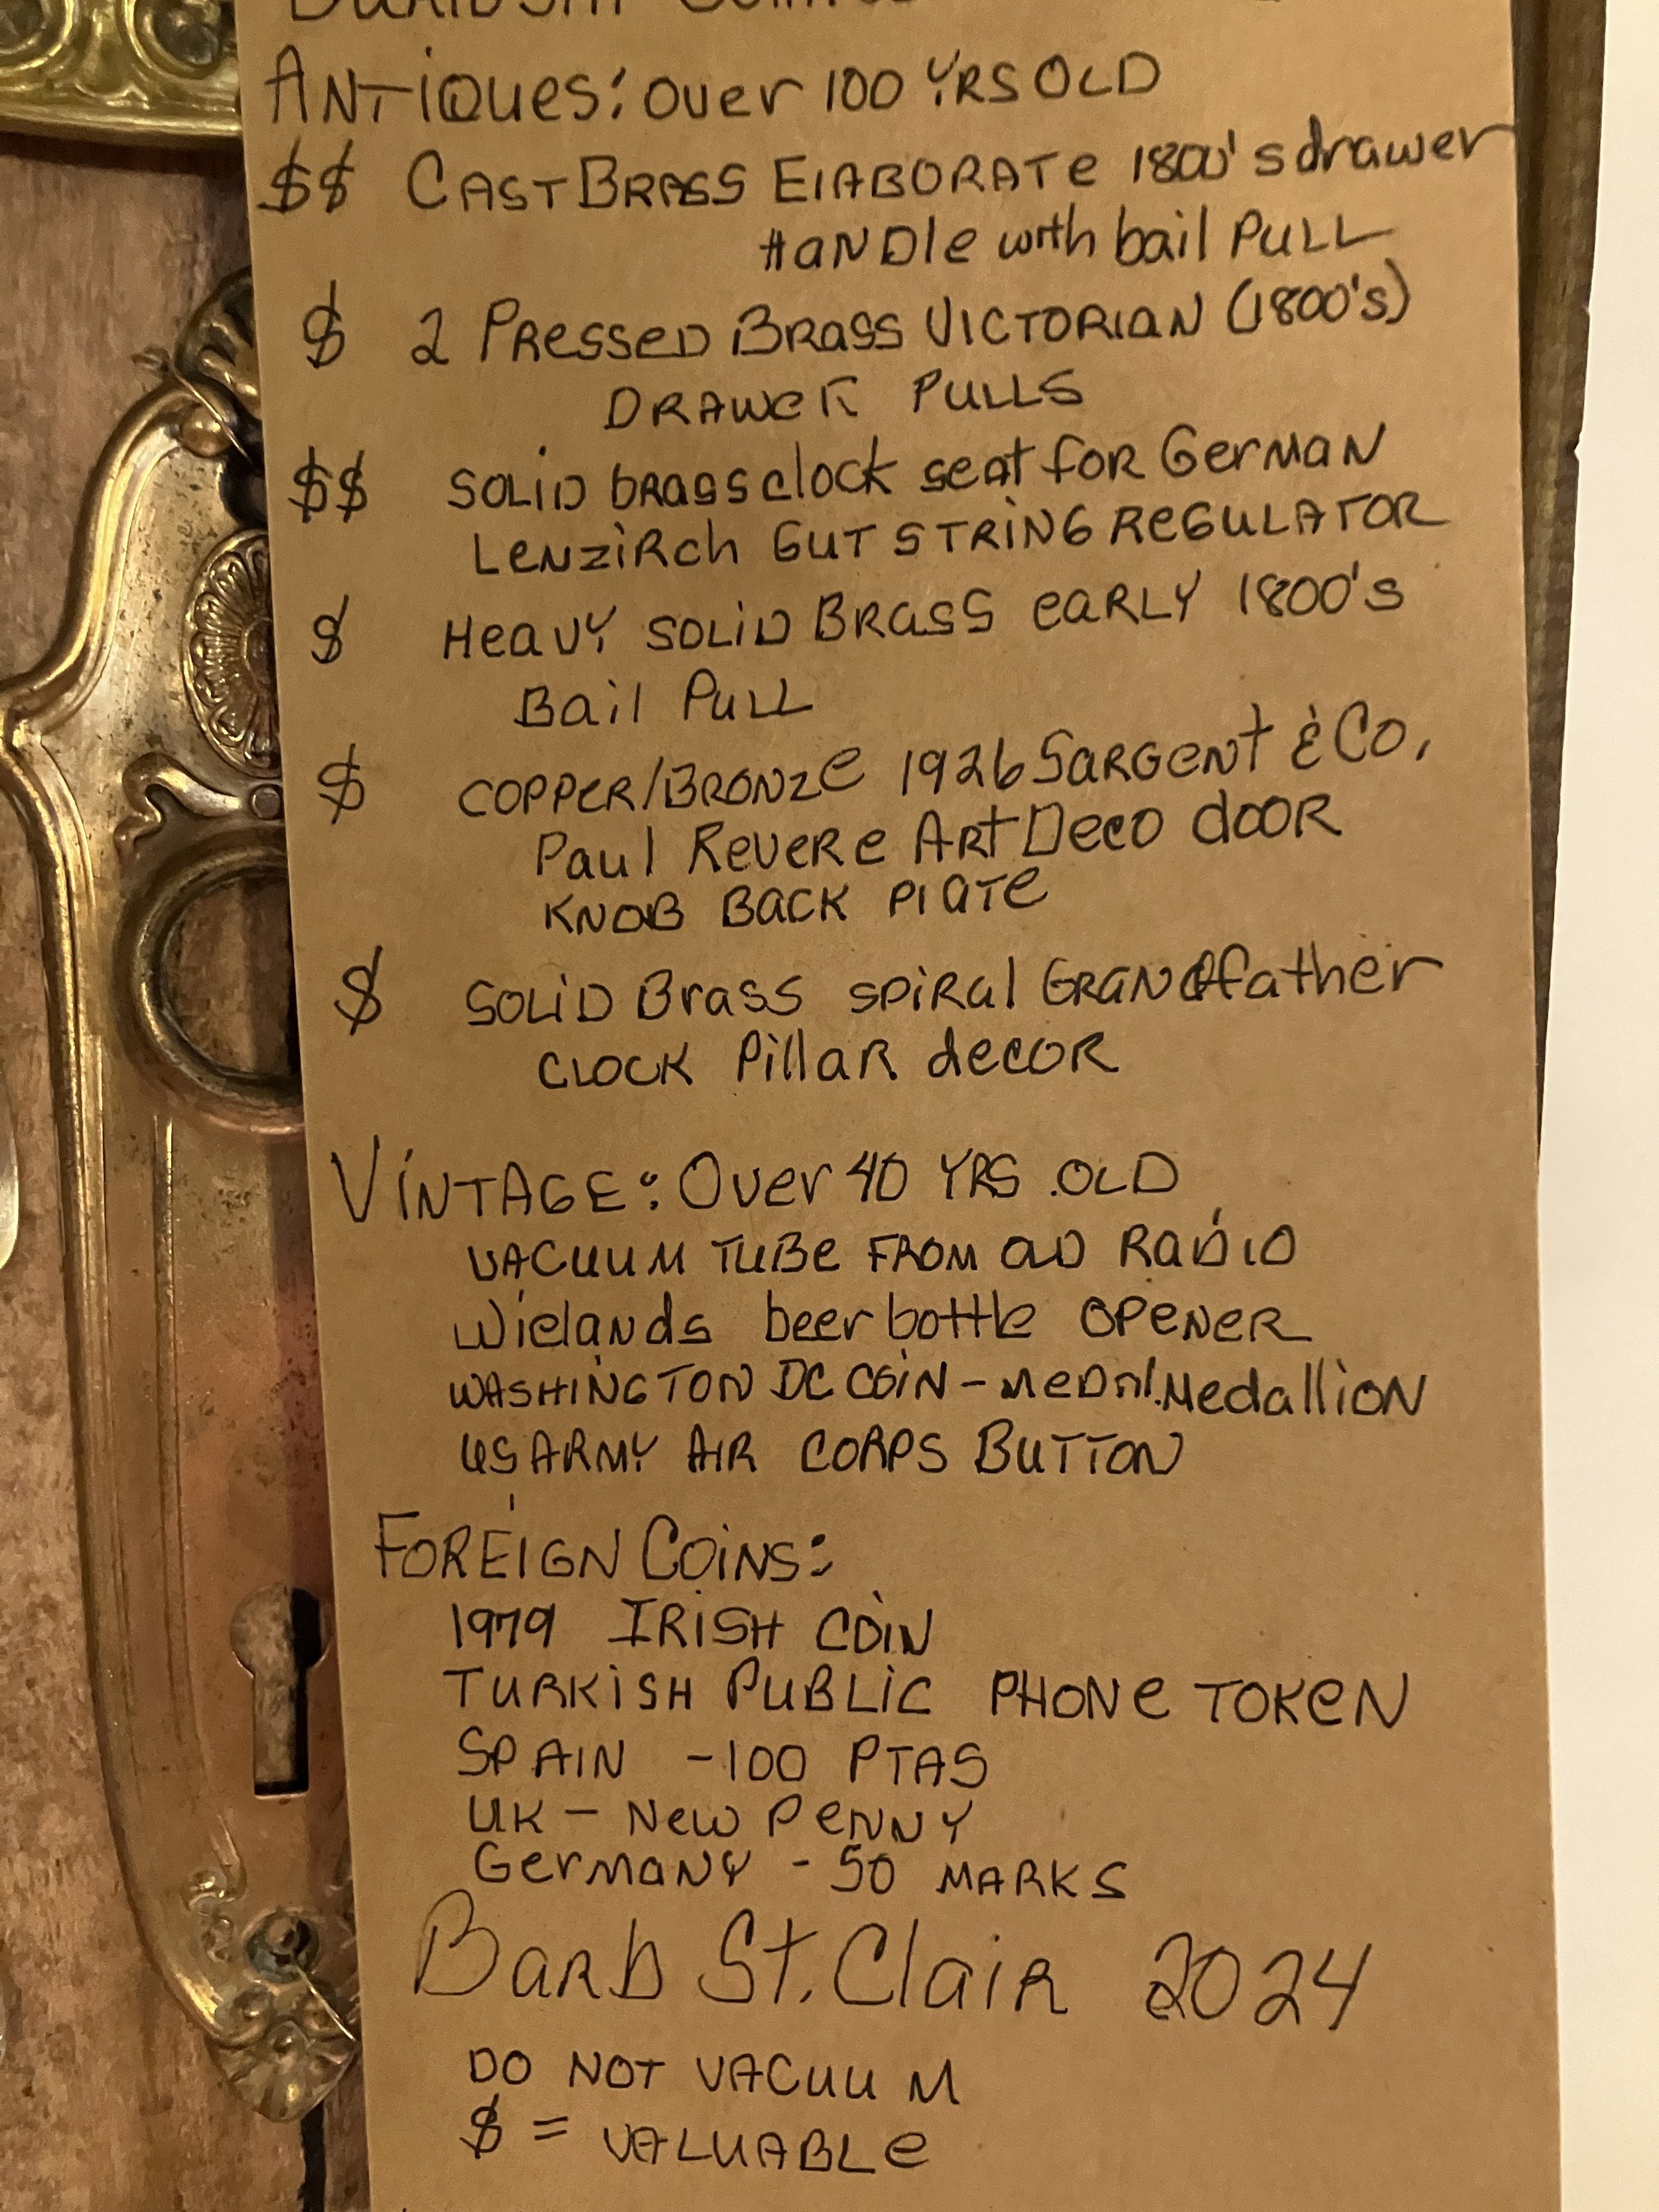 ANTIQUES: OVER 100 YRS OLD
$$ CAST BRASS ELABORATE 1800's drawer
HANDLE with bail PULL
$ 2 PRESSED BRASS VICTORIAN (1800's)
DRAWER PULLS
$$ SOLID brass clock seat for GERMAN
LENZIRCH GUT STRING REGULATOR
$ HEAVY SOLID BRASS EARLY 1800's
Bail PULL
$ COPPER/BRONZE 1926 SARGENT & Co.
Paul REVERE ART DECO dOOR
KNOB BACK PLATE
$ SOLID BRASS SPIRAL GRANDfather
CLOCK PillAR decor
VINTAGE: Over 40 YRS. OLD
VACUUM TUBE FROM OLD RADIO
Wielands beer bottle OPENER
WASHINGTON DC COIN - MEDAL. Medallion
US ARMY AIR CORPS BUTTON
FOREIGN COINS:
1979 IRISH COIN
TURKISH PUBLIC PHONE TOKEN
SPAIN - 100 PTAS
UK - NEW PENNY
GERMANY - 50 MARKS
Barb St. Clair 2024
DO NOT VACUUM
$ = VALUABLE